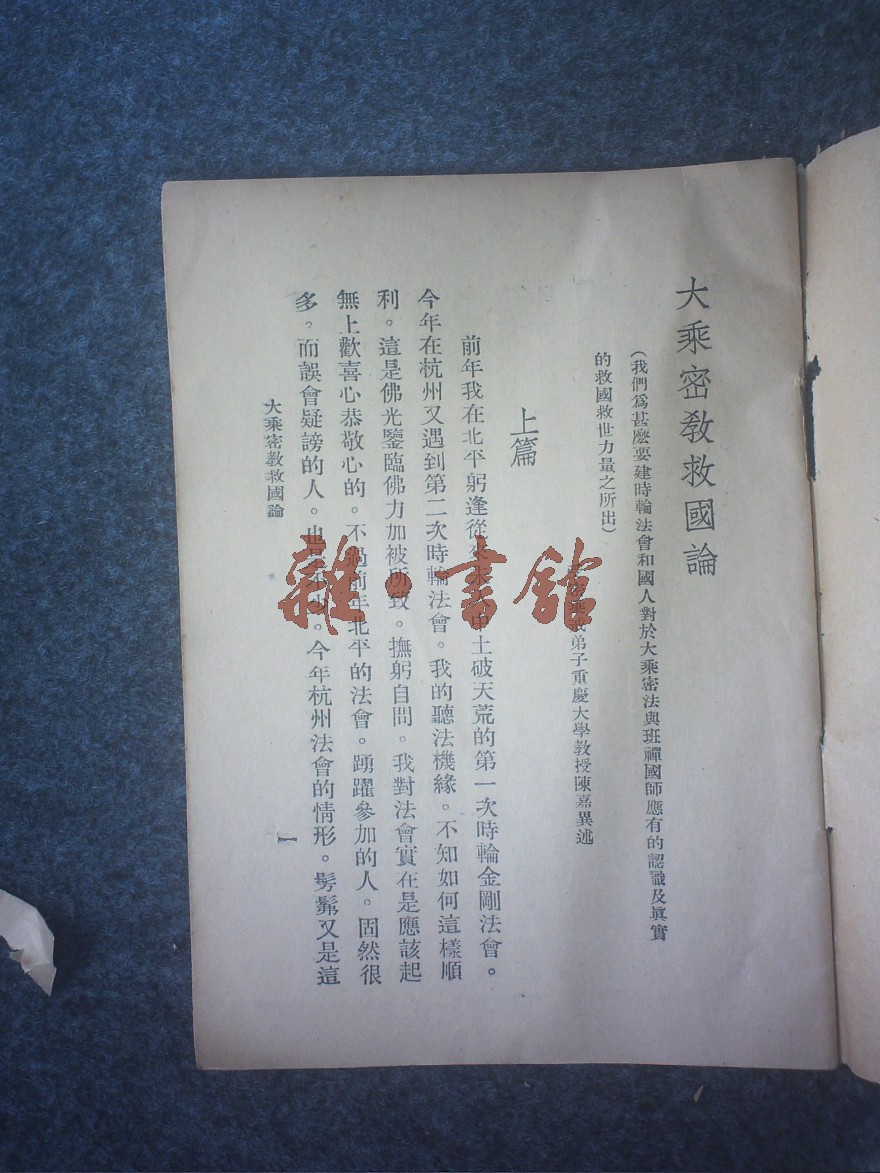 大乘密教救國論
(我們爲甚麽要建時輪法會和國人對於大乘密法與班禪國師應有的認識及眞實
的救國救世力量之所出)
弟子重慶大學教授陳嘉異述
上篇
前年我在北平躬逢從來未 中土破天荒的第一次時輪金剛法會。
今年在杭州又遇到第二次時輪法會。我的聽法機緣。不知如何這樣順
利。這是佛光鑒臨佛力加被所致。撫躬自問。我對法會實在是應該起
無上歡喜心恭敬心的。不過前年北平的法會。踴躍參加的人。固然很
多。而誤會疑謗的人。也是不少。今年杭州法會的情形。髣髴又是這
大乘密教救國論
一
雜·書館